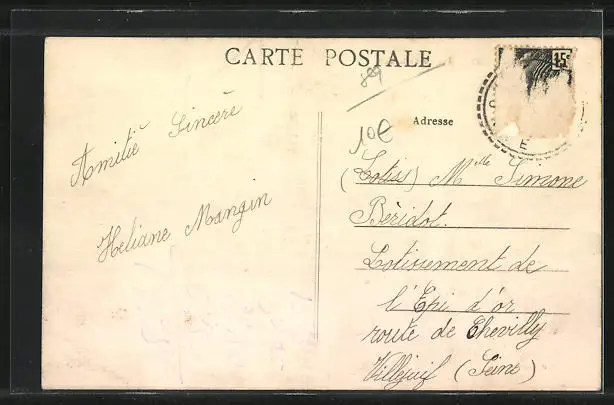 CARTE POSTALE
89
15c
10€
Adresse
E
Amitié Sincère
Heliane Mangin
(Lotiss) Mlle Simone
Béridot.
Lotissement de
l'Epi d'or
route de Chevilly
Villejuif (Seine)